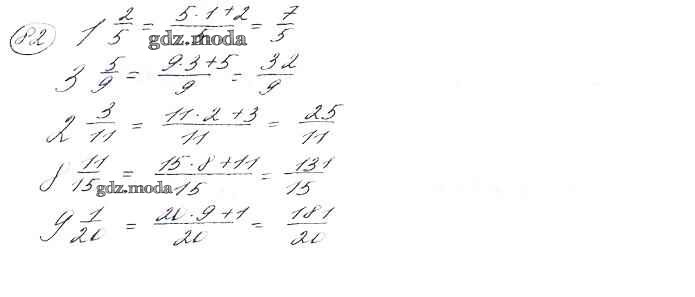 82) 1 2/5 = (5·1+2)/5 = 7/5
gdz.moda
3 5/9 = (9·3+5)/9 = 32/9
2 3/11 = (11·2+3)/11 = 25/11
8 11/15 = (15·8+11)/15 = 131/15
gdz.moda
9 1/20 = (20·9+1)/20 = 181/20